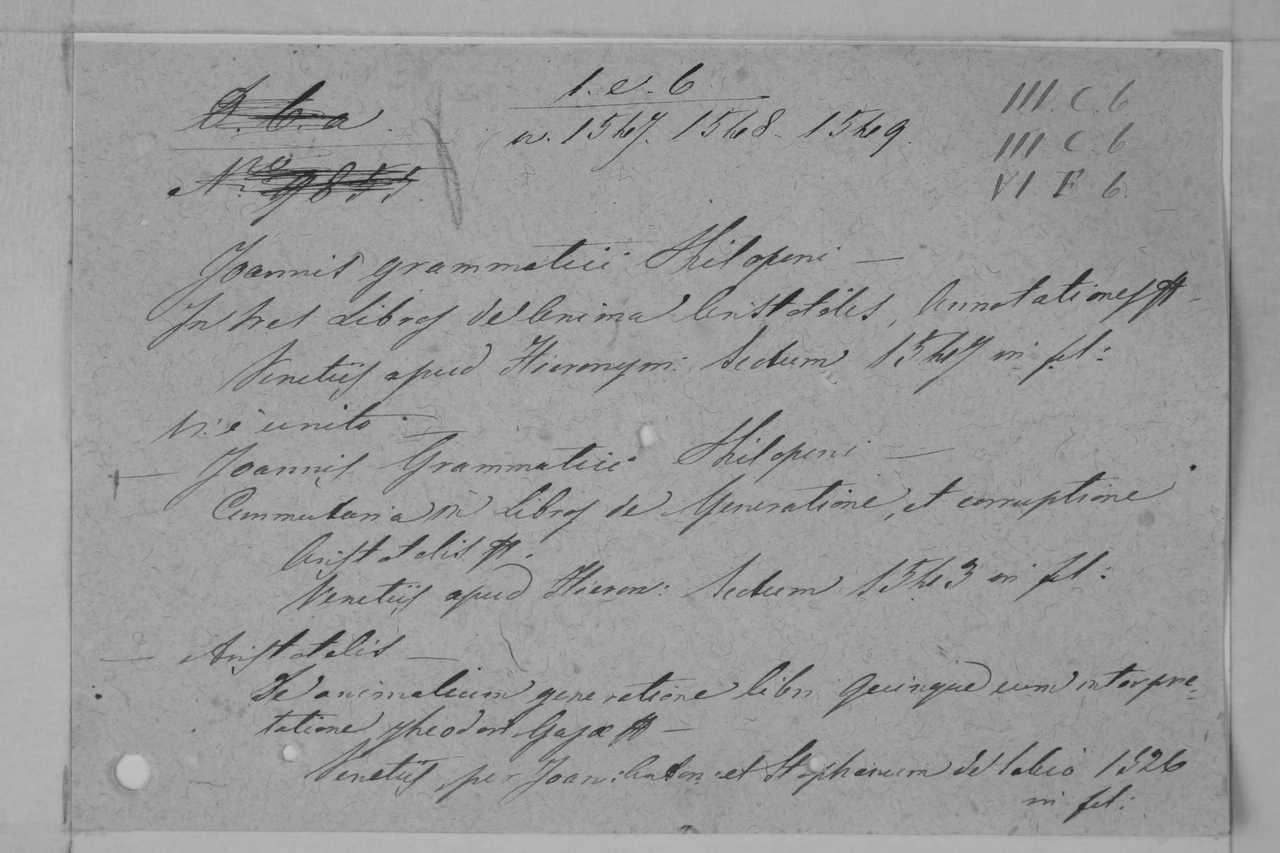 D. 6. a
1. e. 6.
III. C. 6
n. 1547. 1548. 1549.
III C. 6
Nro 9855.
VI F 6.
Joannis grammatici Philoponi —
In tres Libros de Anima Aristotelis, Annotationes
Venetijs apud Hieronym: Scotum 1547 in fol:
Vi è unito
— Joannis Grammatici Philoponi —
Commentaria in Libros de Generatione, et corruptione
Aristotelis
Venetijs apud Hieron: Scotum 1543 in fol:
— Aristotelis —
De animalium generatione libri quinque cum interpre-
tatione Theodori Gazæ —
Venetijs per Joan: Anton: et Stephanum de Sabio 1526
in fol: